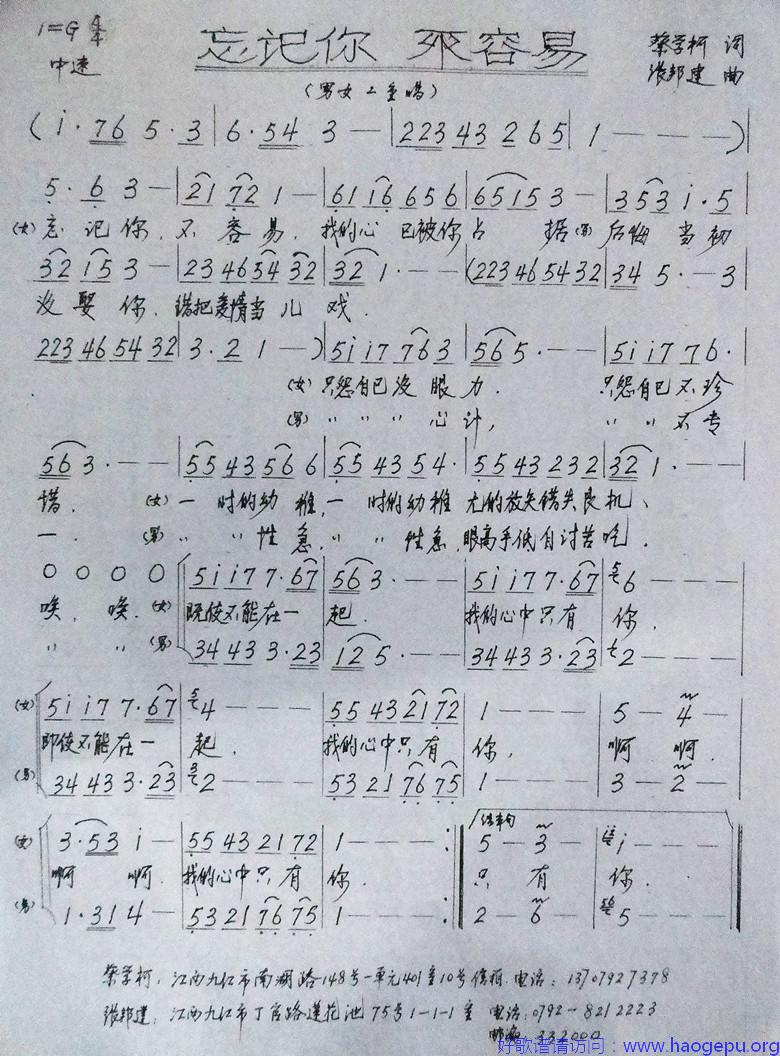 1=G 4/4
忘记你 不容易
蔡学柯 词
中速
张邦建 曲
(男女二重唱)
( i · 76 5 · 3 | 6 · 54 3 — | 223 43 2 6 5 | 1 — — — ) |
5 · 6 3 — | 21 72 1 — | 61 i6 656 | 65153 — | 353 i · 5
(女) 忘记你, 不容易, 我的心已被你占据 (男) 后悔当初
32 15 3 — | 23 46 54 32 | 32 1 · — — | (223 46 54 32 | 34 5 · — 3
没娶你, 错把爱情当儿戏.
223 46 54 32 | 3 · 2 1 — ) | 5i i7 763 | 56 5 · — — | 5i i7 76 ·
(女) 只怨自己没眼力. 只怨自己不珍
(男) " " " 心计, " " 不专
56 3 · — — | 55 43 56 6 | 55 43 54 · | 55 43 232 | 32 1 · — —
惜. (女) 一时的幼稚, 一时的幼稚 放矢错失良机、
一. (男) " " 性急, " " 性急, 眼高手低自讨苦吃.
0 0 0 0 | 5i i7 7 · 67 | 56 3 · — — | 5i i7 7 · 67 | 6 — — —
唉, 唉. (女) 既使不能在一起. 我的心中只有你,
" " (男) 34 43 3 · 23 | 12 5 · — — | 34 43 3 · 23 | 2 — — —
(女) 5i i7 7 · 67 | 4 — — — | 55 43 21 72 | 1 — — — | 5 — 4 —
即使不能在一起. 我的心中只有你, 啊 啊.
(男) 34 43 3 · 23 | 2 — — — | 53 21 76 75 | 1 — — — | 3 — 2 —
结束句
(女) 3 · 53 i — | 55 43 21 72 | 1 — — — :‖ 5 — 3 — | i — — — ‖
啊 啊. 我的心中只有你. 只有你.
(男) 1 · 31 4 — | 53 21 76 75 | 1 — — — :‖ 2 — 6 — | 5 — — — ‖
蔡学柯, 江西九江市南湖路148号一单元401室10号信箱. 电话: 13707927378
张邦建, 江西九江市丁官路莲花池75号1-1-1室 电话: 0792-8212223
邮编 332000
好歌谱请访问：www.haogepu.org